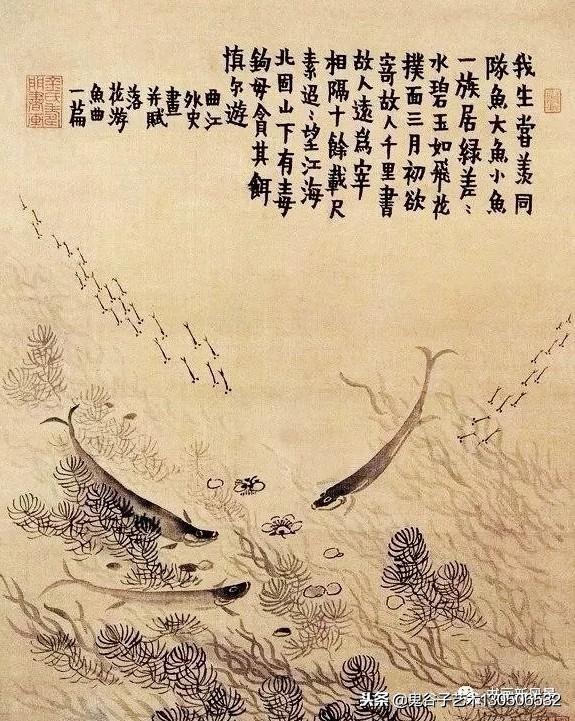 我生嘗羨同
隊魚大魚小魚
一族居緑差〻
水碧玉如飛花
撲面三月初欲
寄故人千里書
故人遠爲宰
相隔十餘載尺
素迢〻望江海
北固山下有毒
鉤毋貪其餌
慎尔遊
曲江
外史
畫
并賦
落
花游
魚曲
一篇
头条 @鬼谷子艺术130506532